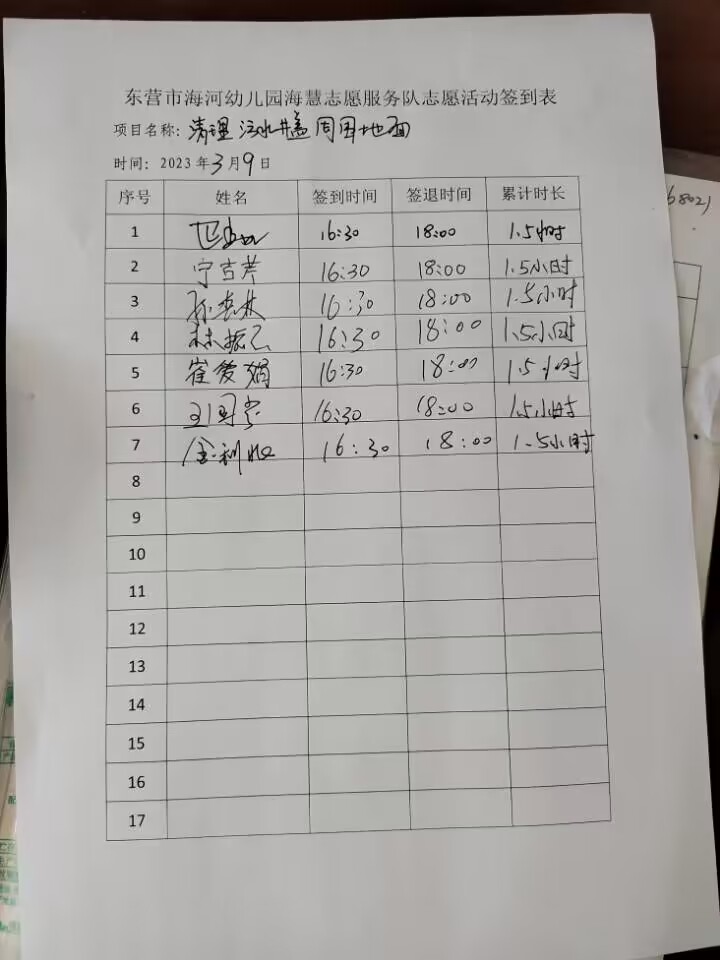 东营市海河幼儿园海慧志愿服务队志愿活动签到表
项目名称：清理污水井盖周围地面
时间：2023年3月9日
序号 姓名 签到时间 签退时间 累计时长
1 16:30 18:00 1.5小时
2 宁吉芹 16:30 18:00 1.5小时
3 16:30 18:00 1.5小时
4 林振云 16:30 18:00 1.5小时
5 崔爱娟 16:30 18:00 1.5小时
6 16:30 18:00 1.5小时
7 16:30 18:00 1.5小时
8
9
10
11
12
13
14
15
16
17